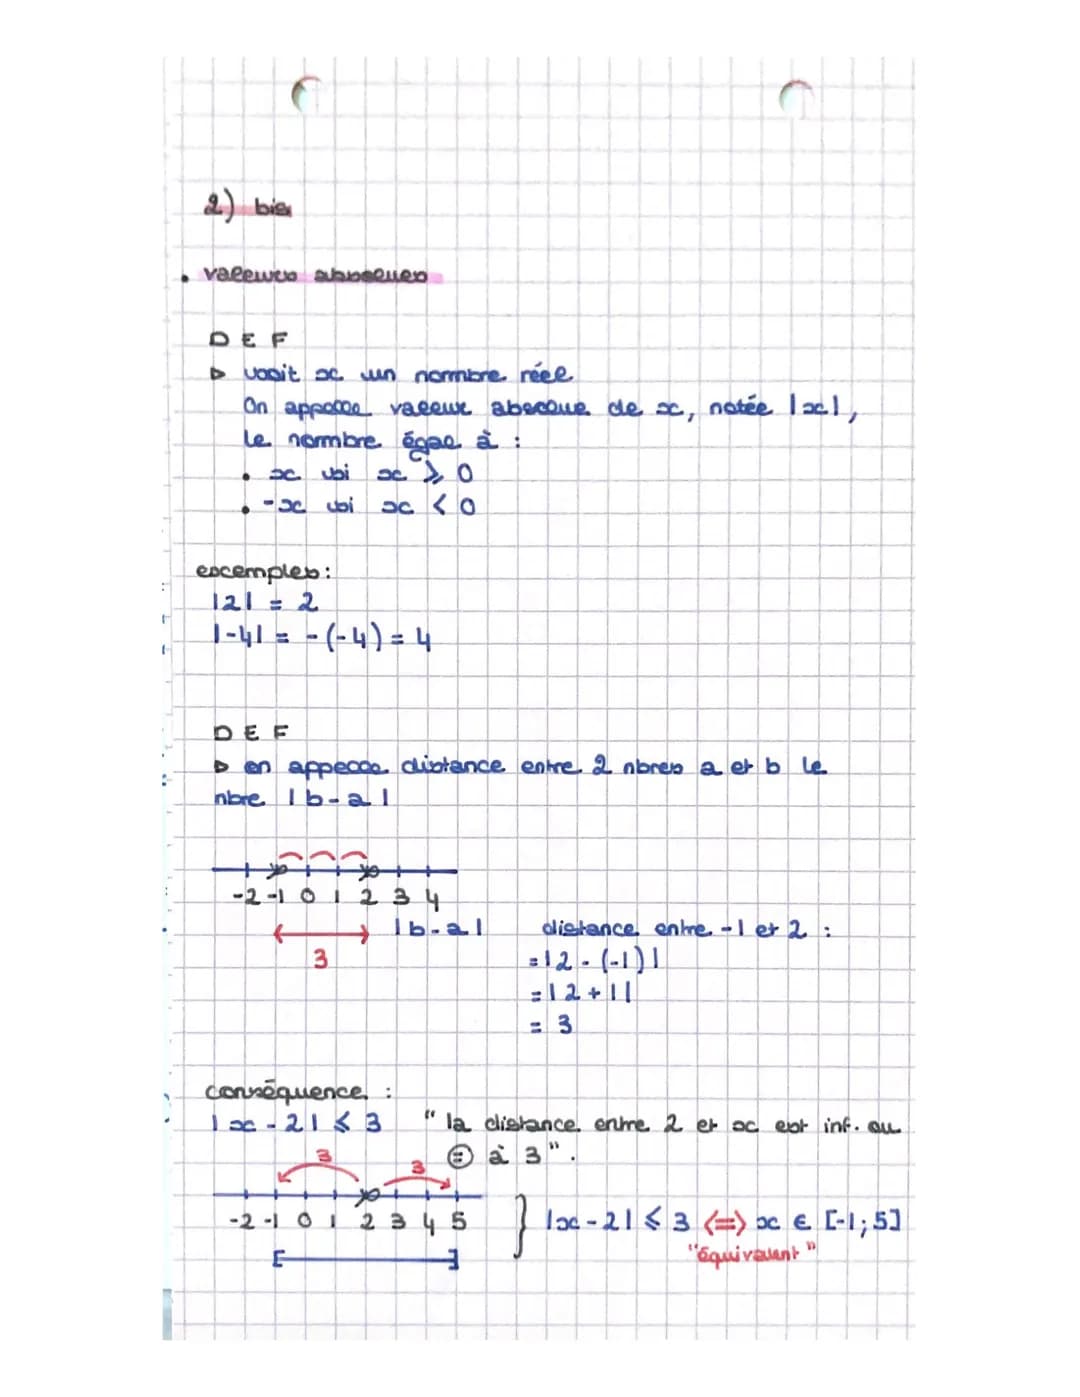 2) bis
• valeurs absolues
D E F
▷ soit x un nombre réel
On appelle valeur absolue de x, notée |x|,
le nombre égal à :
• x si x ⩾ 0
• -x si x < 0
exemples:
|2| = 2
|-4| = -(-4) = 4
D E F
▷ on appelle distance entre 2 nbres a et b le
nbre |b-a|
-2 -1 0 1 2 3 4
3
|b-a|
distance entre -1 et 2 :
=|2-(-1)|
=|2+1|
= 3
conséquence :
|x-2| ⩽ 3 " la distance entre 2 et x est inf. ou
⊜ à 3".
3 3
-2 -1 0 1 2 3 4 5 } |x-2| ⩽ 3 <=> x ∈ [-1;5]
"équivalent"